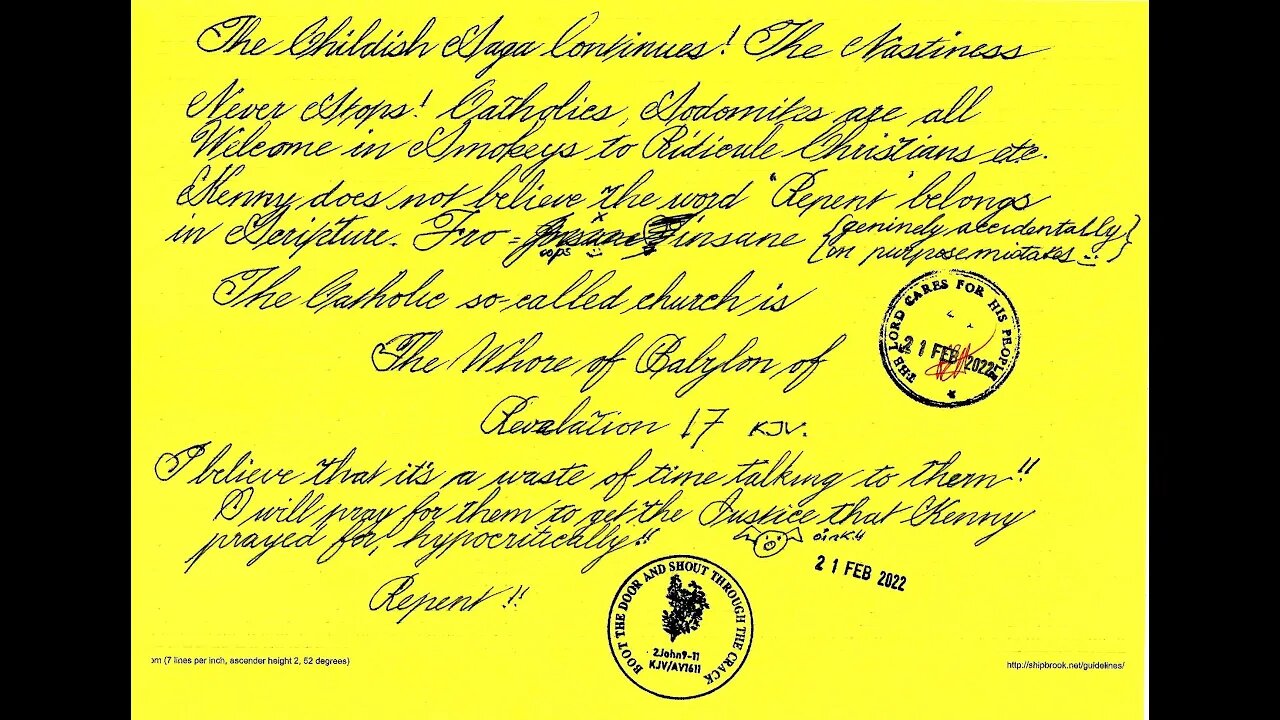 The Childish Saga Continues! The Nastiness
Never Stops! Catholics, Sodomites are all
Welcome in Smokeys to Ridicule Christians etc.
Kenny does not believe the word "Repent" belongs
in Scripture. Fro = insane {geninely accidentally}
oops {on purpose mistakes}
The Catholic so-called church is
THE LORD CARES FOR HIS PEOPLE
21 FEB 2022
The Whore of Babylon of
Revalation 17 KJV.
I believe that it's a waste of time talking to them!!
I will pray for them to get the Justice that Kenny
prayed for, hypocritically!! oink!!
21 FEB 2022
Repent!!
BOOT THE DOOR AND SHOUT THROUGH THE CRACK
2John9-11
KJV/AV1611
om (7 lines per inch, ascender height 2, 52 degrees)
http://shipbrook.net/guidelines/